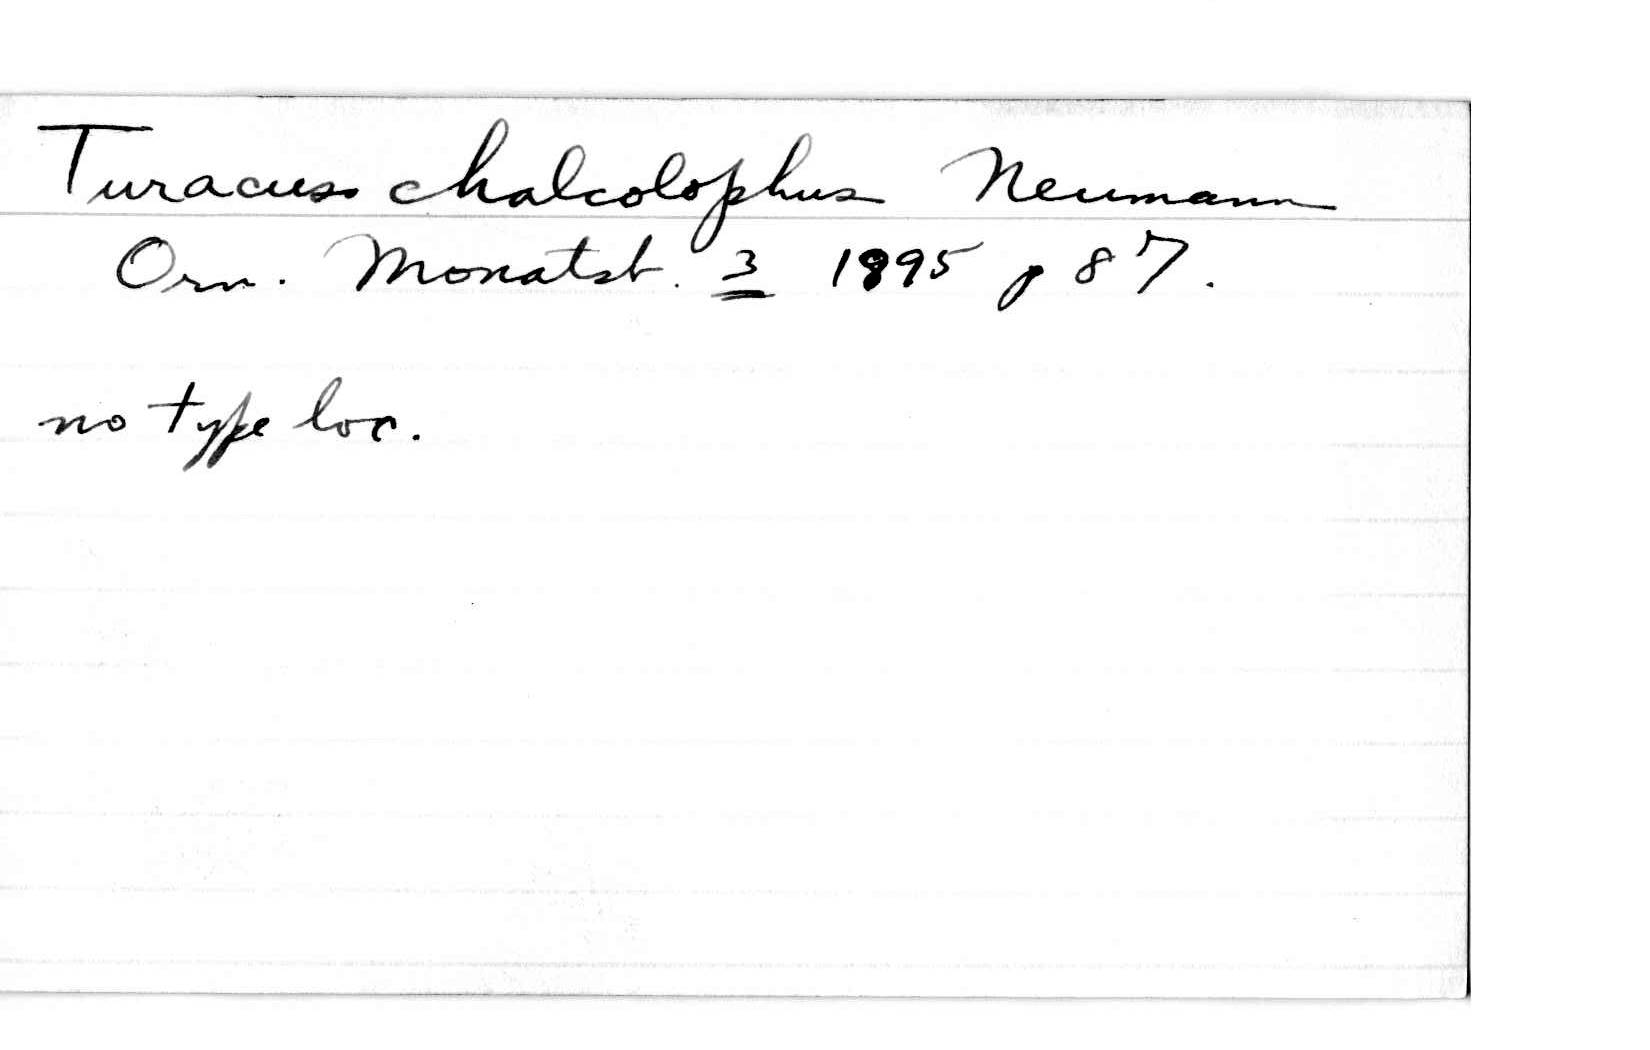 Turacus chalcolophus Neumann
Orn. Monatsb. 3 1895 p 87.
no type loc.